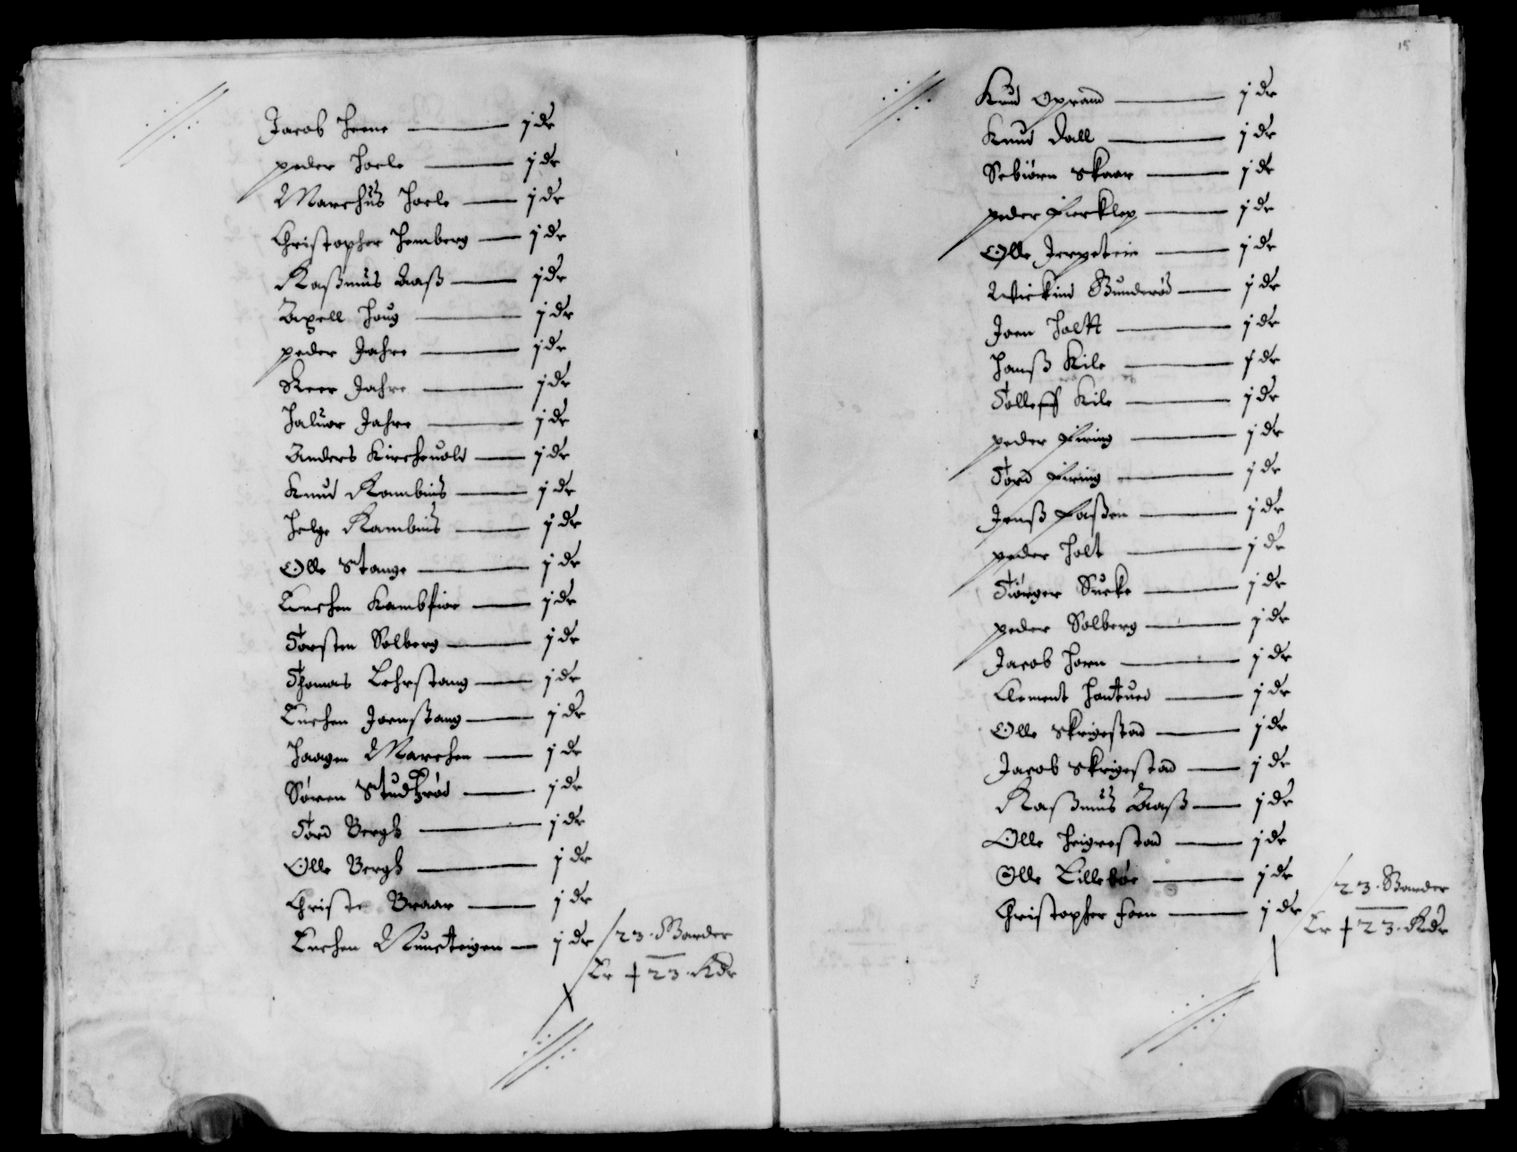 Jacob Heene — j dr
peder Hoele — j dr
Marchus Hoele — j dr
Christopher Hemberg — j dr
Raßmus Aaß — j dr
Axell Houg — j dr
peder Jahre — j dr
Steer Jahre — j dr
Haluor Jahre — j dr
Anders Kircheuold — j dr
Knud Rambius — j dr
Helge Rambius — j dr
Olle Stange — j dr
Luchen Kambfior — j dr
Torsten Solberg — j dr
Thomas Lehrstang — j dr
Luchen Joenstang — j dr
Haagen Marchen — j dr
Søren Studtzrød — j dr
Tord Bergh — j dr
Olle Bergh — j dr
Christe Braar — j dr
Luchen Munsteigen — j dr
23 Garder
Er + 23 Rdr
15
Knud Oprand — j dr
Knud Dall — j dr
Sebiørn Skaar — j dr
peder Fierklep — j dr
Olle — j dr
Wickind Gunderød — j dr
Joen Holtt — j dr
Hanß Kile — j dr
Tolleff Kile — j dr
peder Firing — j dr
Tord Firing — j dr
Jenß Faßen — j dr
peder Holt — j dr
Tiørger Sucke — j dr
peder Solberg — j dr
Jacob Horn — j dr
Clement Hantued — j dr
Olle Skrigestad — j dr
Jacob Skrigestad — j dr
Raßmus Aaß — j dr
Olle Heigrestad — j dr
Olle Lillebøe — j dr
Christopher Foen — j dr
23 Garder
Er + 23 Rdr